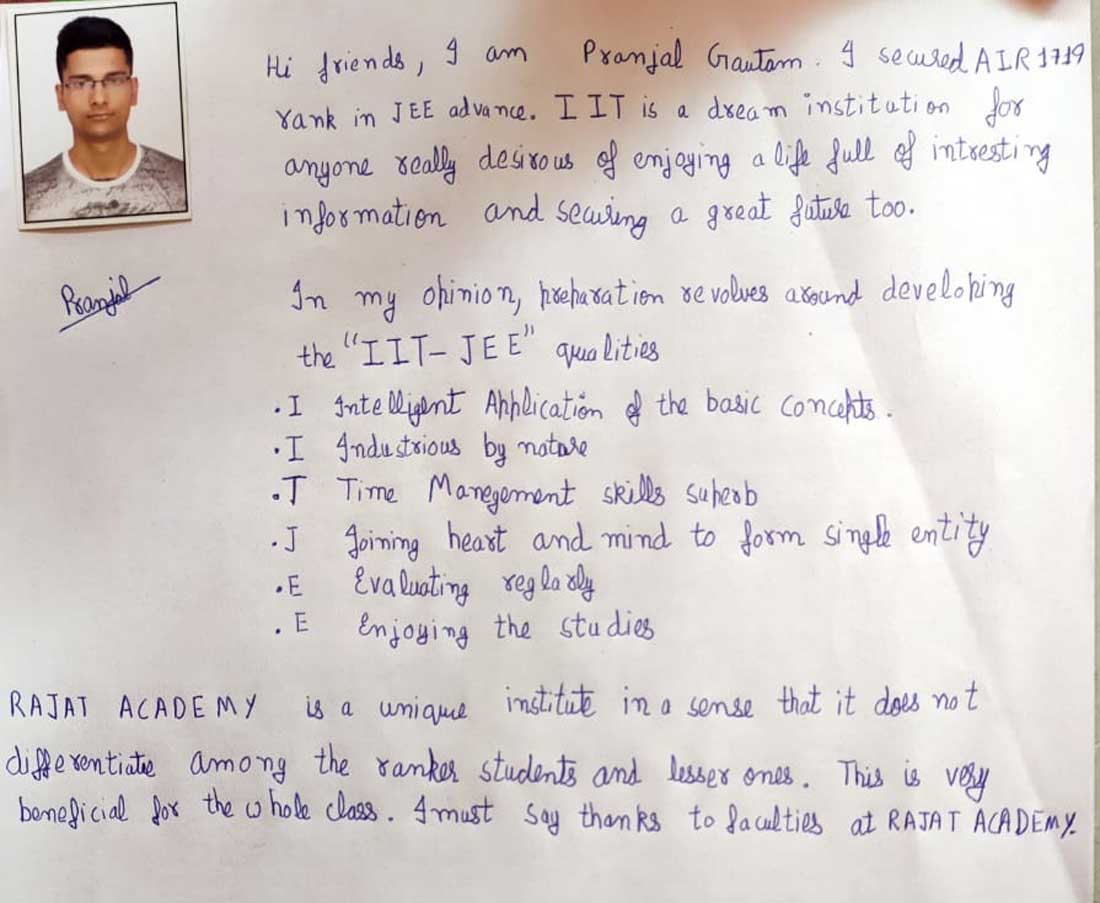 Hi friends, I am Pranjal Gautam. I secured AIR 1719
rank in JEE advance. IIT is a dream institution for
anyone really desirous of enjoying a life full of intresting
information and securing a great future too.
Pranjal
In my opinion, preparation revolves around developing
the "IIT-JEE" qualities
.I Intelligent Application of the basic concepts.
.I Industrious by nature
.T Time Manegement skills superb
.J Joining heart and mind to form single entity
.E Evaluating reglarly
.E Enjoying the studies
RAJAT ACADEMY is a unique institute in a sense that it does not
differentiate among the ranker students and lesser ones. This is very
beneficial for the whole class. I must say thanks to faculties at RAJAT ACADEMY.